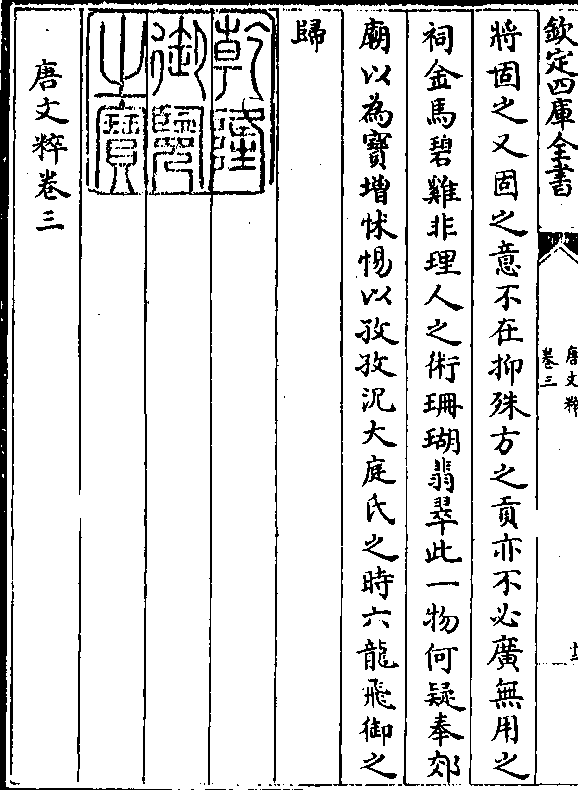 欽定四庫全書
唐文粹
卷三
將固之又固之意不在抑殊方之貢亦不必廣無用之
祠金馬碧雞非理人之術珊瑚翡翠此一物何疑奉郊
廟以為寳增怵惕以孜孜況大庭氏之時六龍飛御之
歸
乾隆
御覽
之寶
唐文粹卷三